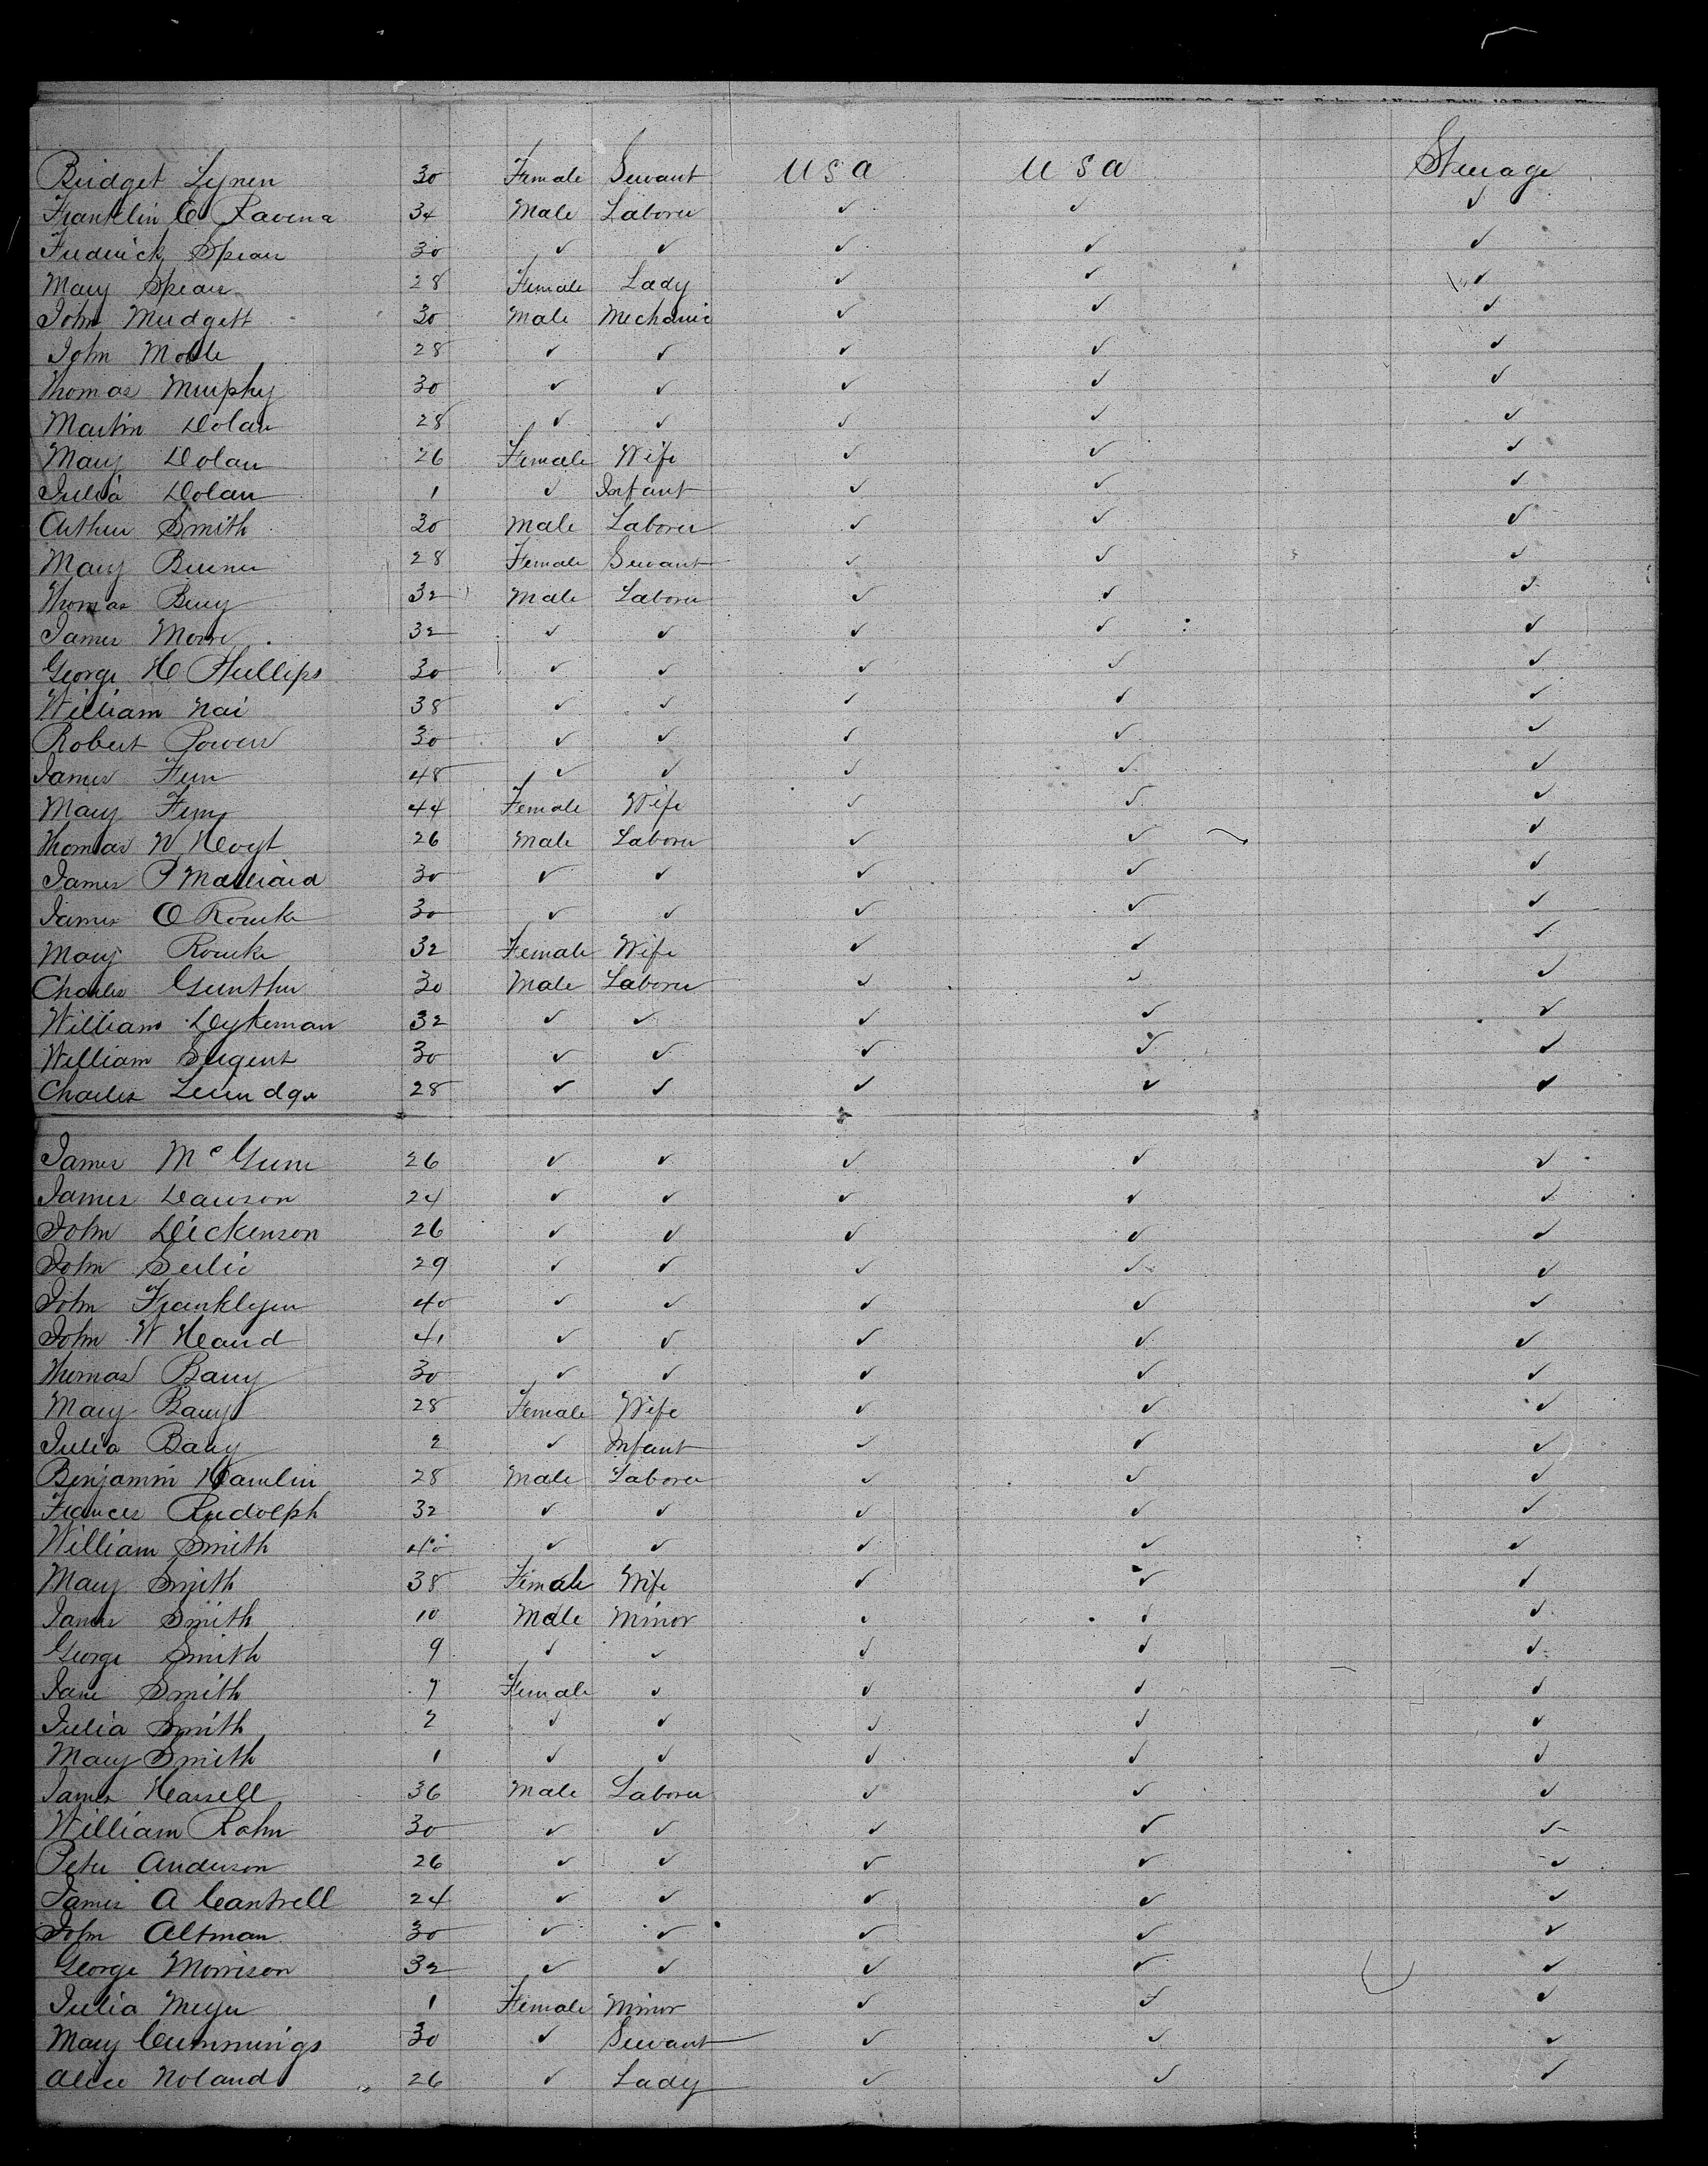 Bridget Lynen 30 Female Servant U S A U S A Steerage
Franklin C Ravena 34 Male Laborer ✓ ✓ ✓
Frederick Spear 30 ✓ ✓ ✓ ✓ ✓
Mary Spear 28 Female Lady ✓ ✓ ✓
John Mudgett 30 Male Mechanic ✓ ✓ ✓
John Moble 28 ✓ ✓ ✓ ✓ ✓
Thomas Murphy 30 ✓ ✓ ✓ ✓ ✓
Martin Dolan 28 ✓ ✓ ✓ ✓ ✓
Mary Dolan 26 Female Wife ✓ ✓ ✓
Julia Dolan 1 ✓ Infant ✓ ✓ ✓
Arthur Smith 30 Male Laborer ✓ ✓ ✓
Mary 28 Female Servant ✓ ✓ ✓
Thomas Berry 32 Male Laborer ✓ ✓ ✓
James 32 ✓ ✓ ✓ ✓ ✓
George H Phillips 30 ✓ ✓ ✓ ✓ ✓
William Nai 38 ✓ ✓ ✓ ✓ ✓
Robert Powers 30 ✓ ✓ ✓ ✓ ✓
James 48 ✓ ✓ ✓ ✓ ✓
Mary 44 Female Wife ✓ ✓ ✓
Thomas W Hoyt 26 Male Laborer ✓ ✓ ✓
James P Malliard 30 ✓ ✓ ✓ ✓ ✓
James O Rourke 30 ✓ ✓ ✓ ✓ ✓
Mary Rourke 32 Female Wife ✓ ✓ ✓
Charles Gunther 30 Male Laborer ✓ ✓ ✓
William Dykeman 32 ✓ ✓ ✓ ✓ ✓
William Sergent 30 ✓ ✓ ✓ ✓ ✓
Charles 28 ✓ ✓ ✓ ✓ ✓
James 26 ✓ ✓ ✓ ✓ ✓
James Dawson 24 ✓ ✓ ✓ ✓ ✓
John Dickenson 26 ✓ ✓ ✓ ✓ ✓
John 29 ✓ ✓ ✓ ✓ ✓
John Franklyen 40 ✓ ✓ ✓ ✓ ✓
John W Heard 41 ✓ ✓ ✓ ✓ ✓
Thomas Barry 30 ✓ ✓ ✓ ✓ ✓
Mary Barry 28 Female Wife ✓ ✓ ✓
Julia Barry 2 ✓ Infant ✓ ✓ ✓
Benjamin Hamlin 28 Male Laborer ✓ ✓ ✓
Frances Rudolph 32 ✓ ✓ ✓ ✓ ✓
William Smith 40 ✓ ✓ ✓ ✓ ✓
Mary Smith 38 Female Wife ✓ ✓ ✓
James Smith 10 Male Minor ✓ ✓ ✓
George Smith 9 ✓ ✓ ✓ ✓ ✓
Jane Smith 7 Female ✓ ✓ ✓ ✓
Julia Smith 2 ✓ ✓ ✓ ✓ ✓
Mary Smith 1 ✓ ✓ ✓ ✓ ✓
James Harsell 36 Male Laborer ✓ ✓ ✓
William Rohn 30 ✓ ✓ ✓ ✓ ✓
Peter Anderson 26 ✓ ✓ ✓ ✓ ✓
James A Cantrell 24 ✓ ✓ ✓ ✓ ✓
John Altman 30 ✓ ✓ ✓ ✓ ✓
George Morrison 32 ✓ ✓ ✓ ✓ ✓
Julia Meyer 1 Female Minor ✓ ✓ ✓
Mary Cummings 30 ✓ Servant ✓ ✓ ✓
Alice Noland 26 ✓ Lady ✓ ✓ ✓